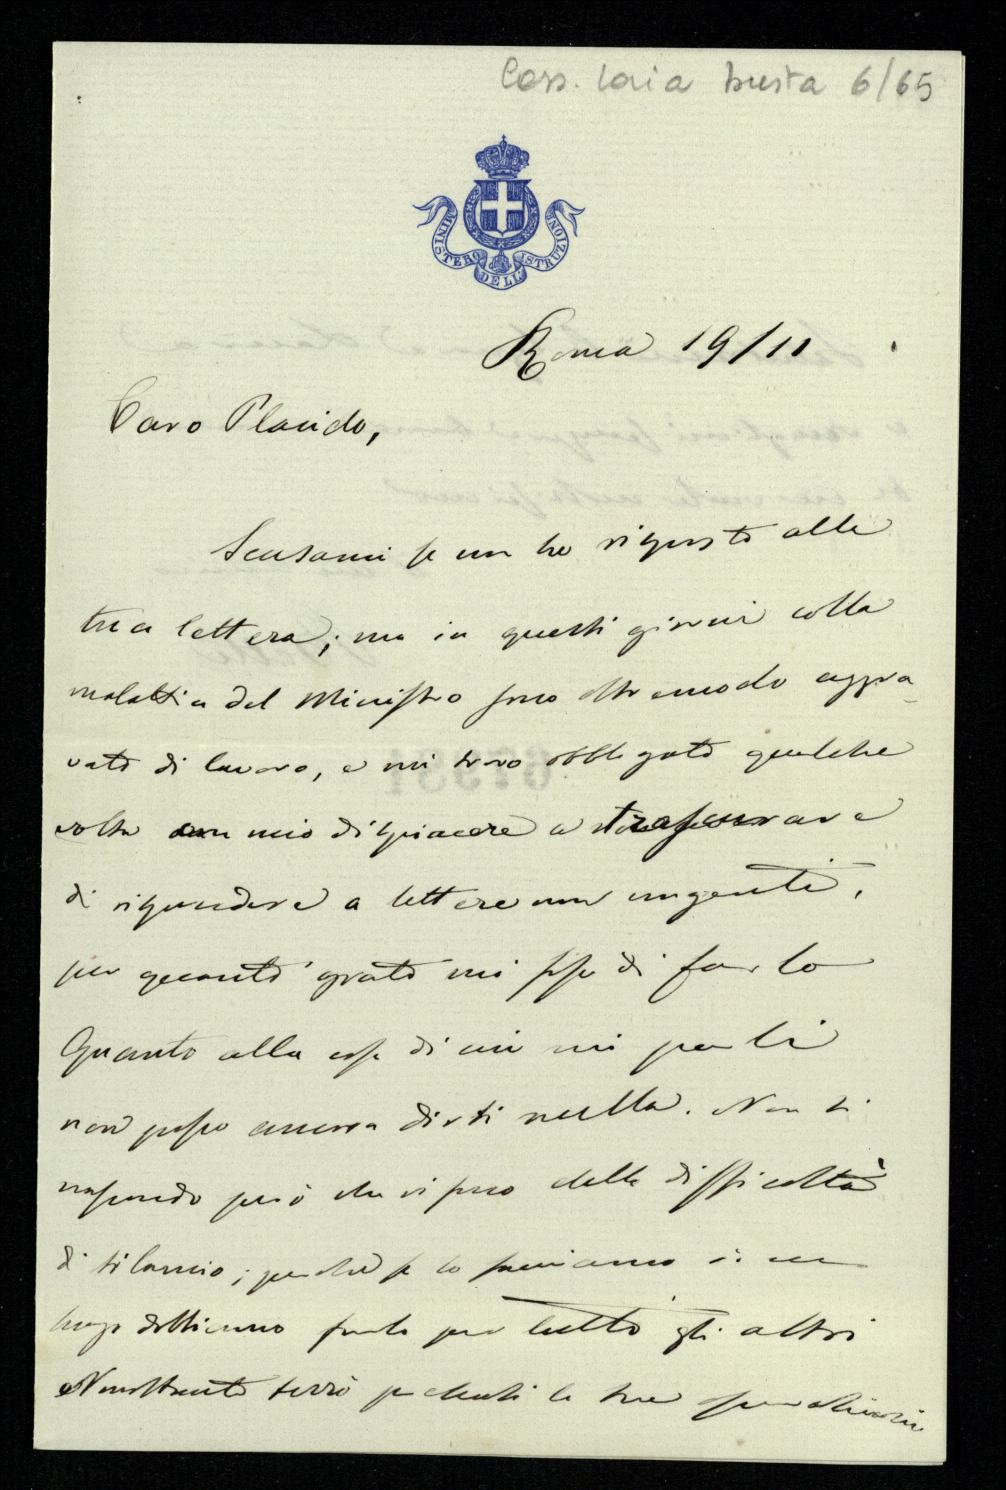 Corr. Loria busta 6/65
MINISTERO DELL ISTRUZIONE
Roma 19/11
Caro Placido,
Scusami se non ho risposto alla
tua lettera; ma in questi giorni colla
malattia del Ministro sono oltremodo aggra-
vato di lavoro, e mi trovo obbligato qualche
volta con mio dispiacere a trascurare
di rispondere a lettere non urgenti,
per quanto grato mi sia di farlo
Quanto alla cosa di cui mi parli
non posso ancora dirti nulla. Non ti
nascondo però che vi sono delle difficoltà
di bilancio; perchè se lo facciamo in un
luogo dobbiamo farlo per tutti gli altri
Nonostante terrò presenti le tue